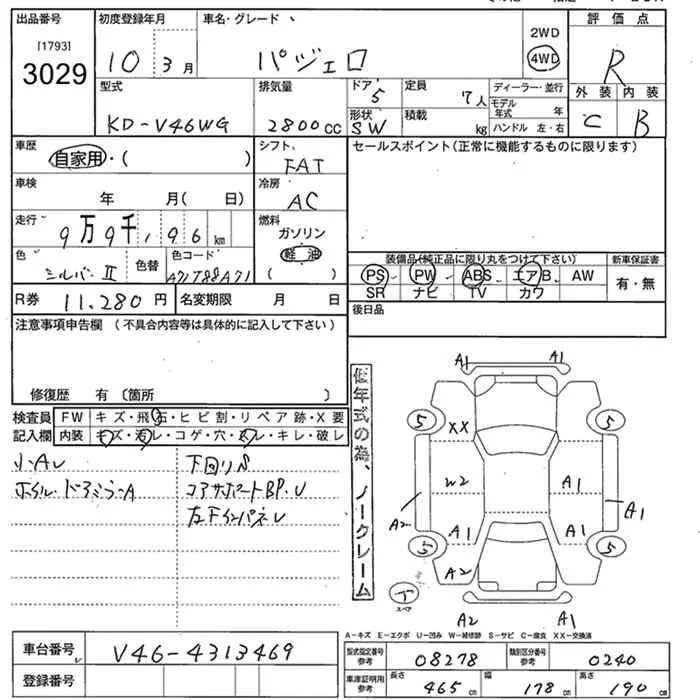 出品番号 初度登録年月 車名・グレード 評価点
[1793] 3029
10 3月 パジェロ
2WD
4WD
R
型式 排気量 ドア 5 定員 7人 ディーラー・並行
KD-V46WG 2800cc 形状 SW 積載 kg
モデル年式 年
ハンドル 左・右
外装 内装
C B
車歴 自家用・( )
シフト FAT
セールスポイント(正常に機能するものに限ります)
車検 年 月( 日)
冷房 AC
走行 9万9千196km
燃料 ガソリン 軽油 ( )
色 シルバーII 色替 色コード
装備品(純正品に限り丸をつけて下さい) 新車保証書
PS PW ABS エアB AW 有・無
SR ナビ TV カワ
R券 11.280円 名変期限 月 日
後日品
注意事項申告欄 (不具合内容等は具体的に記入して下さい)
修復歴 有 (箇所 )
検査員 FW キズ・飛石・ヒビ割・リペア跡・X要
記入欄 内装 キズ・汚レ・コゲ・穴・スレ・キレ・破レ
小AU 下回りS
コアサポートBP.U
左FインパネU
低年式の為、ノークレーム
A1 A1
5 5
XX
W2 A1
A2 A1
A1 A1
5 5
A2
下 スペア
A2 A1
A-キズ E-エクボ U-凹み W-補修跡 S-サビ C-腐食 XX-交換済
車台番号 V46-4313469
登録番号
型式指定番号 参考 08278 類別区分番号 参考 0240
車庫証明用 参考 長さ 465cm 幅 178cm 高さ 190cm